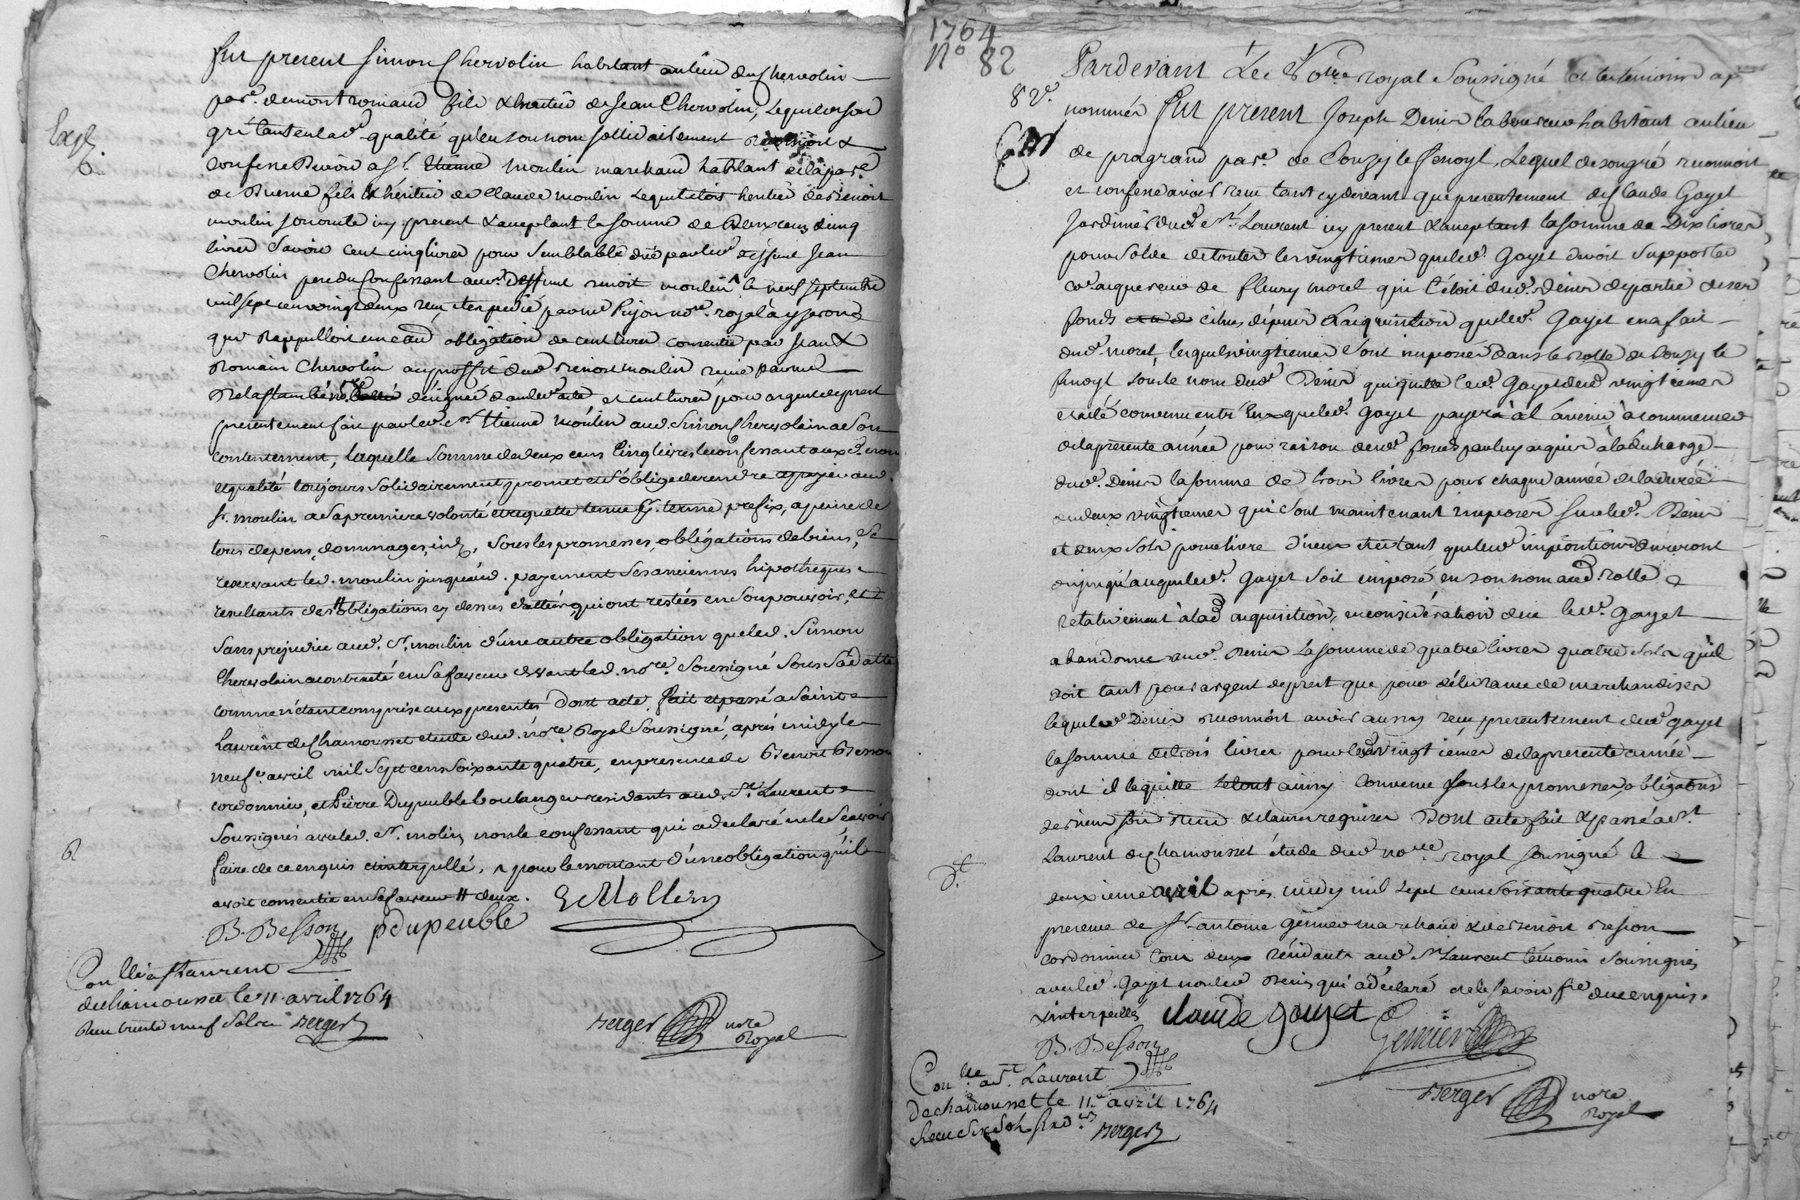 fut present Simon Chervolin habitant au lieu du Chervolin
par.e de montromand fils & heritier de Jean Chervolin, Lequel de son
gré tant en lad.e qualité qu'en son nom sollidairement reconnoit &
Exp.
confesse devoir a s.r Etienne moulin marchand habitant de la par.e
de Brienne fils & héritier de Claude moulin Lequel etoit heritier de Benoit
moulin son oncle icy present & acceptant la somme de Deux cens cinq
livres Savoir Cent cinq livres pour Semblable düe par led. deffunt Jean
Chervolin pere du Confessant aud. Deffunt Benoit moulin ^ le neuf septembre
mil sept cens vingt deux receu et expedié par me Pijon no.re royal à yzerons
qui Rappelloit une aud obligation de cent livres consentie par Jean &
Romain Chervolin au proffit dud Benoit moulin reciie par me
Delastambé no.re designée dans led. acte et cent livres pour argent de prest
présentement fait par led. S.r Etienne moulin aud. Simon Chervolain a Son
contentement, laquelle Somme de deux cens Cinq livres le confessant aux d. nom
et qualité toujours Solidairement promet et S'oblige de rendre et payer aud.
S.r moulin a Sa premiere volonté et requette tenue p.r terme prefix, a peine de
tous depens, dommages, int., Sous les promesses, obligations de biens, Se
reservant led. moulin jusqu'aud. payement Ses anciennes hipotheques
resultants des # obligations cy dessus dattées, qui ont restées en Son pouvoir, et
Sans prejudice aud. S.r moulin d'une autre obligation que led. Simon
Chervolain a contracté en Sa faveur devant led. no.re Soussigné Sous Sa datte
comme n'étant comprise aux presentes Dont acte. fait et passé a Saint
Laurent de Chamousset etude dud. no.re Royal Soussigné, après midy le
neuf.e avril mil Sept cens Soixante quatre, en presence de Benoit Besson
cordonnier, et Pierre Dupeuble boulanger residants aud. S.t Laurent
Soussignés avec led. S.r molin, non le confessant qui a declaré ne le Scavoir
faire de ce enquis et interpellé, ^ pour le montant d'une obligation qu'il
avoit consentie en Sa faveur # deux.
B. Besson pdupeuble E Mollein
Con.llé a St Laurent
de chamousset le 11 avril 1764
Receu trente neuf Sols Berger
Berger nore
Royal
1764
N° 82
82e.
Pardevant Le No.re royal Soussigné & les témoins ap
nommés fut present Joseph Denis laboureur habitant au lieu
de pragrand par.e de Souzy le fenoyl, Lequel de son gré reconnoit
et confesse avoir receu tant cy devant que presentement de Claude Gayet
Jardinier dud. St. Laurent icy present & acceptant la somme de Dix livres
pour Solde de toutes les vingtiemes que led. Gayet devoit Supporter
Co.e acquereur de fleury morel qui l'étoit dud. Denis de partie de ses
fonds cibus depuis l'acquisition que led. Gayet en a fait
dud. morel, lesquels vingtiemes Sont imposés dans le rolle de Souzy le
fenoyl sous le nom dud. Denis qui quitte led. Gayet desd vingtiemes
et a été convenu entre Eux que led. Gayet payera à l'avenir à commencer
de la presente année pour raison desd. fonds par luy acquis à la decharge
dud. Denis la somme de trois livres pour chaque année de la durée
des deux vingtiemes qui Sont maintenant imposés Sur led. Denis
et deux Sols pour livre d'iceux et ce tant que lesd. impositions dureront
ou jusqu'à ce que led. Gayet Soit imposé en son nom aud. Rolle
relativement à lad acquisition, en considération de ce led. Gayet
abandonne aud. Denis la somme de quatre livres quatre Sols qu'il
doit tant pour argent de prest que pour délivrance de marchandises
lequel d. Denis reconnoit avoir aussy receu presentement dud. Gayet
la somme de trois livres pour lesd vingtiemes de la presente année
dont il le quitte le tout ainsy convenu sous les promesses, obligations
de biens & clauses requises Dont acte fait & passé a S.t
Laurent de Chamousset étude dud no.re royal Soussigné le
deuxieme avril après midy mil Sept cens Soixante quatre En
presence de S.r antoine Genier marchand & de Benoit Besson
cordonnier tous deux résidants aud. St Laurent témoins Soussignés
avec led. Gayet non led. Denis qui a déclaré ne le Savoir f.re de ce enquis.
& interpellés claude gayet
Genier
B. Besson
Con.llé a St. Laurent
De chamousset le 11.e avril 1764
Receu Six Sols Berger
Berger nore
Royal